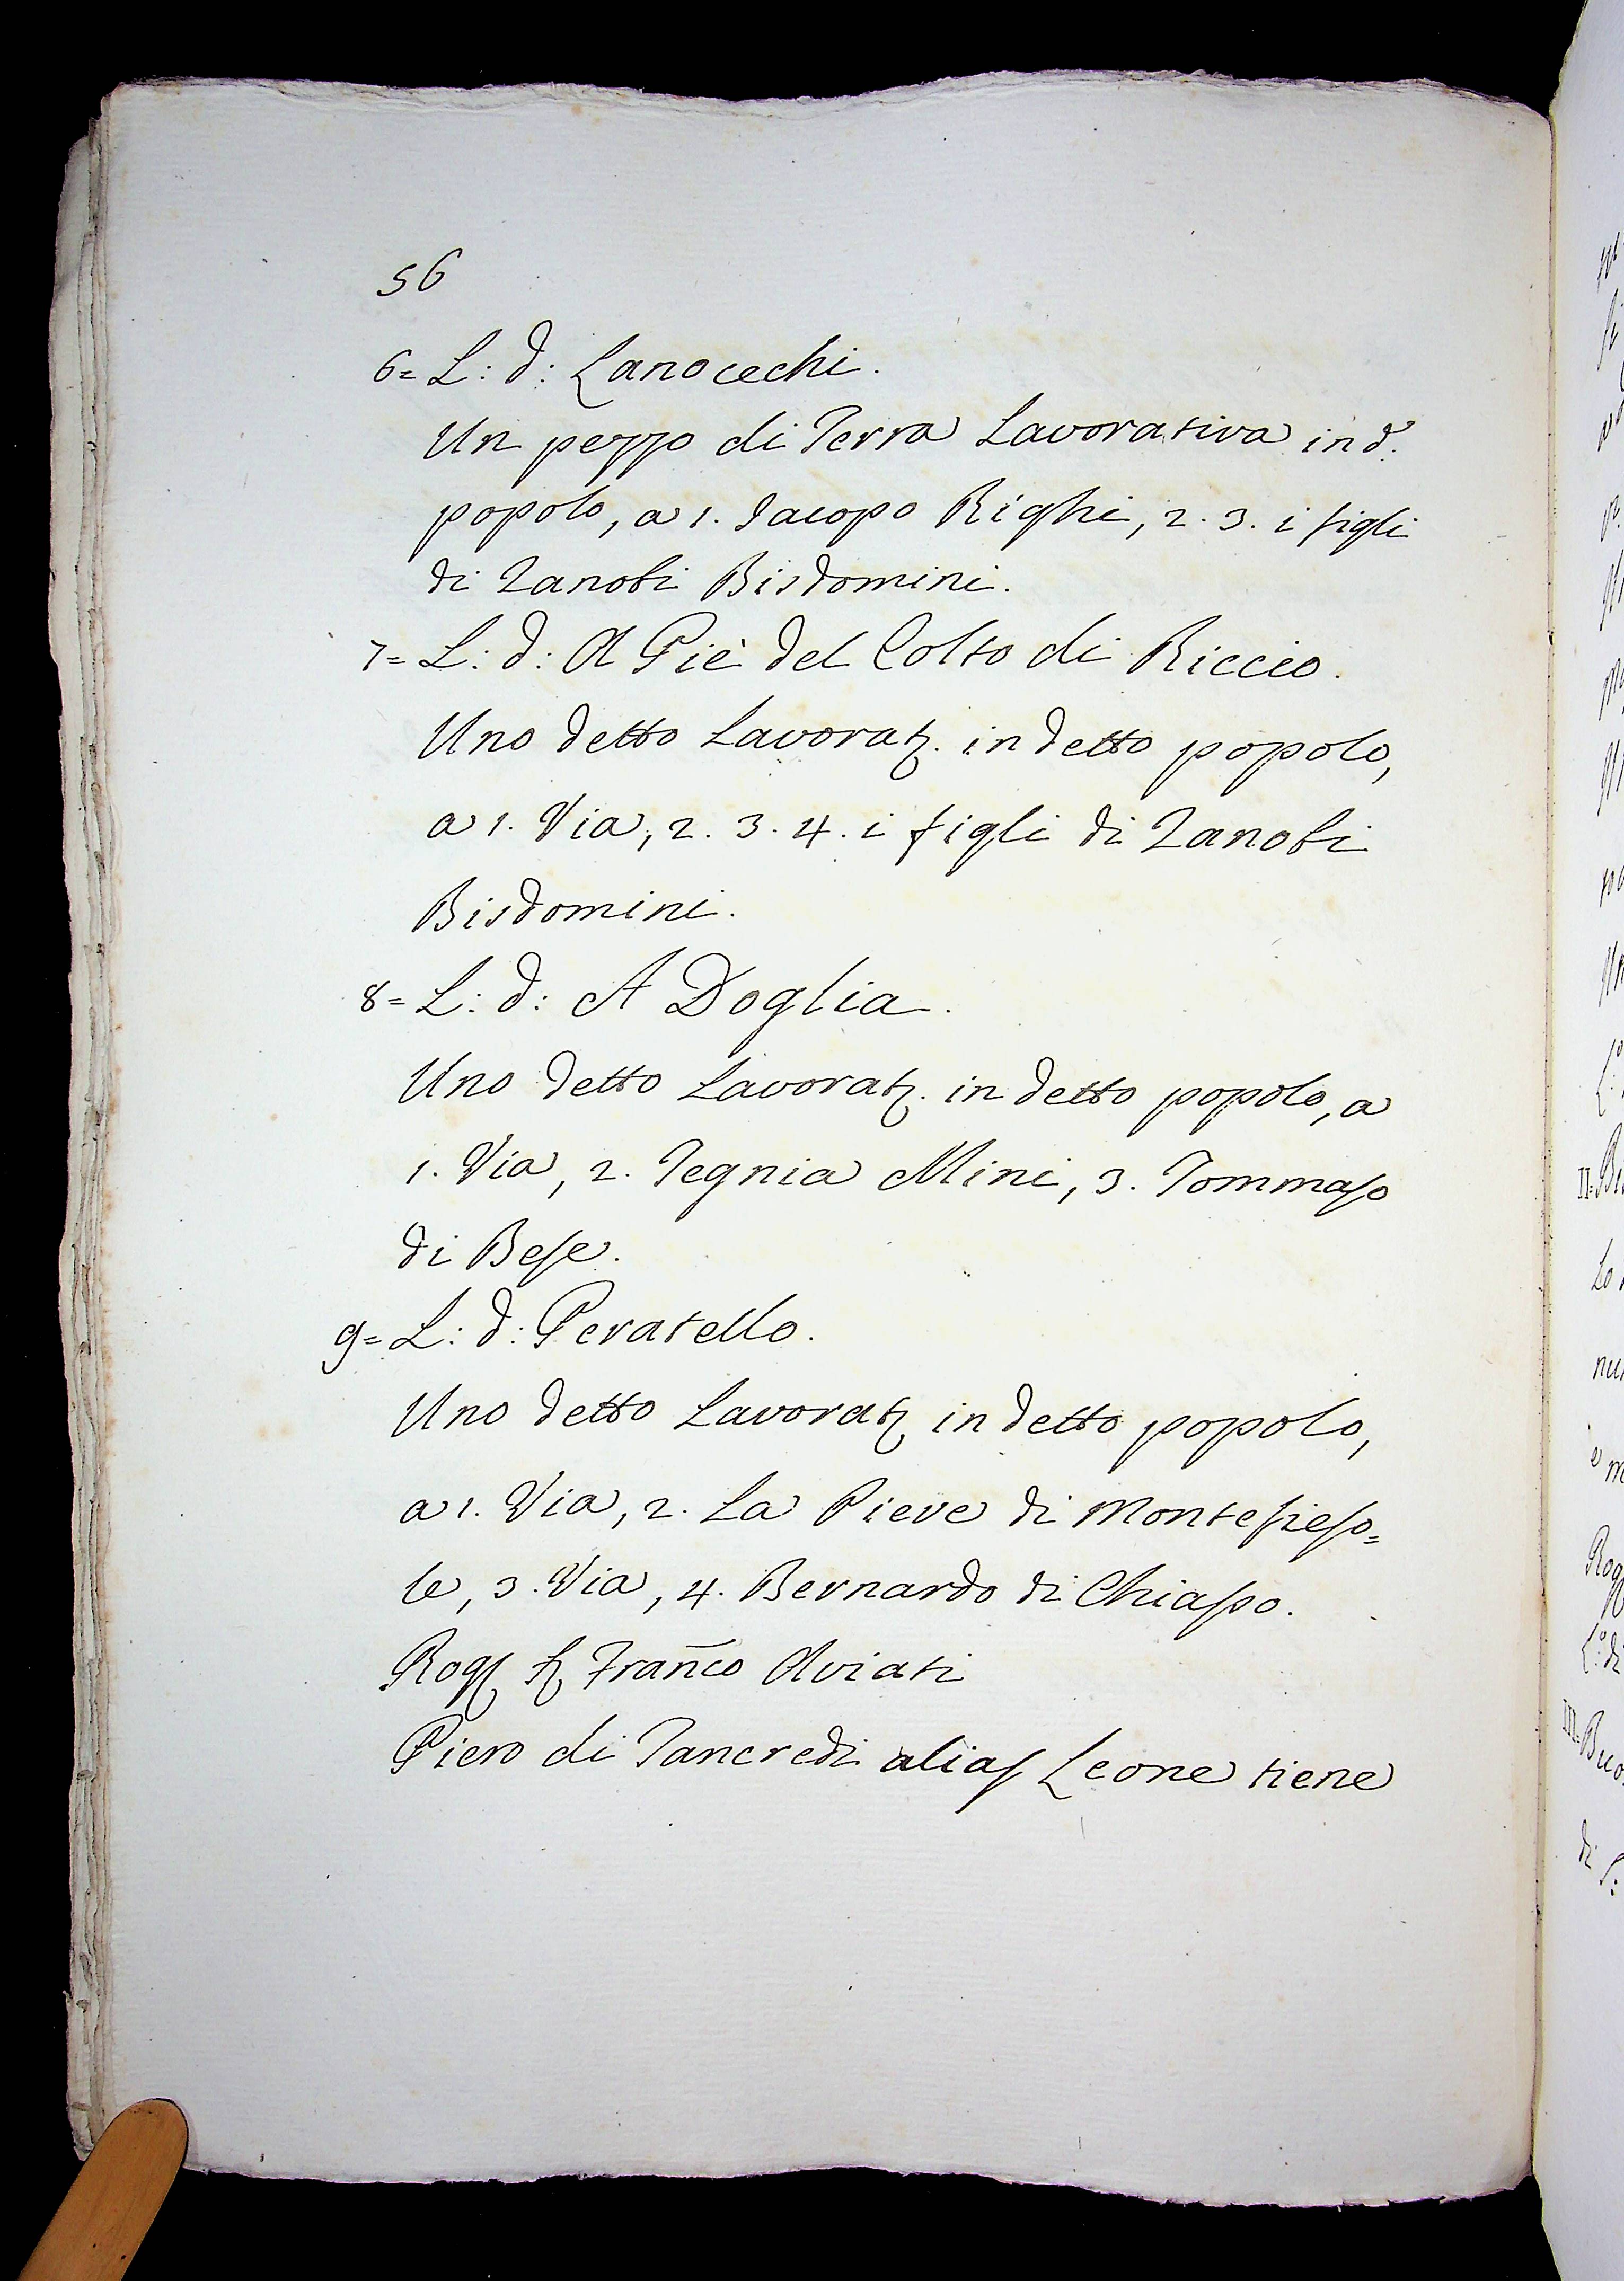 56
6= L: d: Lanocechi.
Un pezzo di Terra Lavorativa in d.º
popolo, a 1. Jacopo Righi, 2. 3. i figli
di Zanobi Bisdomini.
7= L: d: A Piè del Colto di Riccio.
Uno detto Lavorat. in detto popolo,
a 1. Via, 2. 3. 4. i figli di Zanobi
Bisdomini.
8= L: d: A Doglia.
Uno detto Lavorat. in detto popolo, a
1. Via, 2. Tegnia Mini, 3. Tommaso
di Bese.
9= L: d: Peratello.
Uno detto Lavorat. in detto popolo,
a 1. Via, 2. La Pieve di Montefieso=
le, 3. Via, 4. Bernardo di Chiaso.
Rog. Franco Aviati
Piero di Tancredi alias Leone tiene